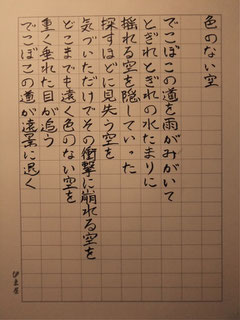 色のない空
でこぼこの道を雨がみがいて
とぎれとぎれの水たまりに
揺れる空を隠していった
探すほどに見失う空を
気づいただけでその衝撃に崩れる空を
どこまでも遠く色のない空を
重く垂れた目が追う
でこぼこの道が遠景に退く
伊東屋